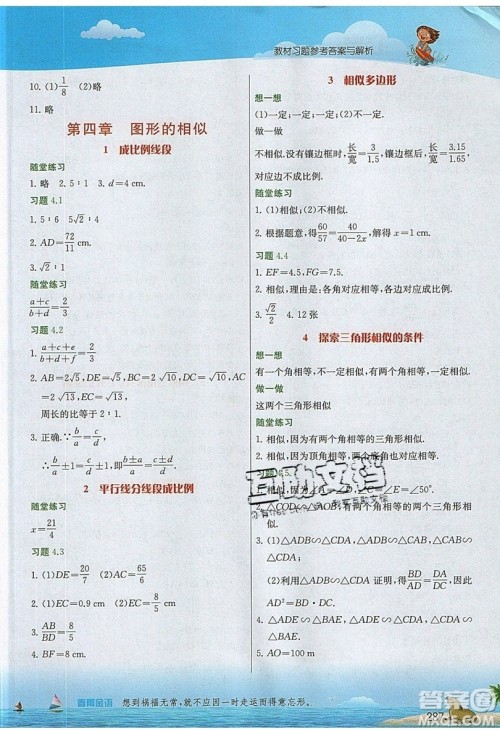 教材习题参考答案与解析
10. (1)1/8 (2)略
11. 略
第四章 图形的相似
1 成比例线段
随堂练习
1. 略 2. 5∶6 3. d=4 cm.
习题 4.1
1. 5∶6 5√2∶2
2. AD=72/11 cm.
3. √2∶1
随堂练习
(a+c)/(b+d)=2/3
习题 4.2
1. (a+c+e)/(b+d+f)=2/3
2. AB=2√5, DE=√5, BC=2√13, AC
=2√10, EF=√13, DF=√10,
周长的比等于2.
3. 正确.∵a/b=c/d,
∴a/b±1=c/d±1=(a±b)/b=(c±d)/d.
2 平行线分线段成比例
随堂练习
x=21/4
习题 4.3
1. (1)DE=20/7 (2)AC=65/6
2. (1)EC=0.9 cm (2)EC=8 cm
3. AB/BD=8/5
4. BF=8
3 相似多边形
想一想
(1)一定;一定;一定. (2)不一定.
做一做
不相似.没有镶边框时,长/宽=3/1.5,镶边框时,长/宽=3.15/1.65.
对应边不成比例.
随堂练习
1. (1)相似;(2)不相似.
2. 根据题意,得60/57=40/(40-2x),解得x=1 cm.
习题 4.4
1. EF=4.5, FG=7.5.
2. 相似,理由是:各角对应相等,各边对应成比例.
3. √2/2 4. 12 张
4 探索三角形相似的条件
想一想
有一个角相等,不一定相似,有两个角相等,一定相似.
做一做
这两个三角形相似
随堂练习
1. 相似,因为有两个角相等的三角形相似.
2. 相似,因为顶角相等,两个底角也对应相等.
习题 4.5
1. 相似,因为∠E=∠50°.
2. △COD∽△AOB
3. (1)△ADB∽△CDA, △ADB∽△CAB, △CDA∽△CAB.
(2)利用△ADB∽△CDA 证明,得BD/AD=DA/DC.
4. △ADE∽△ABC∽△CDB
5. AO=4 cm
互助文档
春雨金语 想到祸福无常,就不应因一时走运而得意忘形。
答案圈